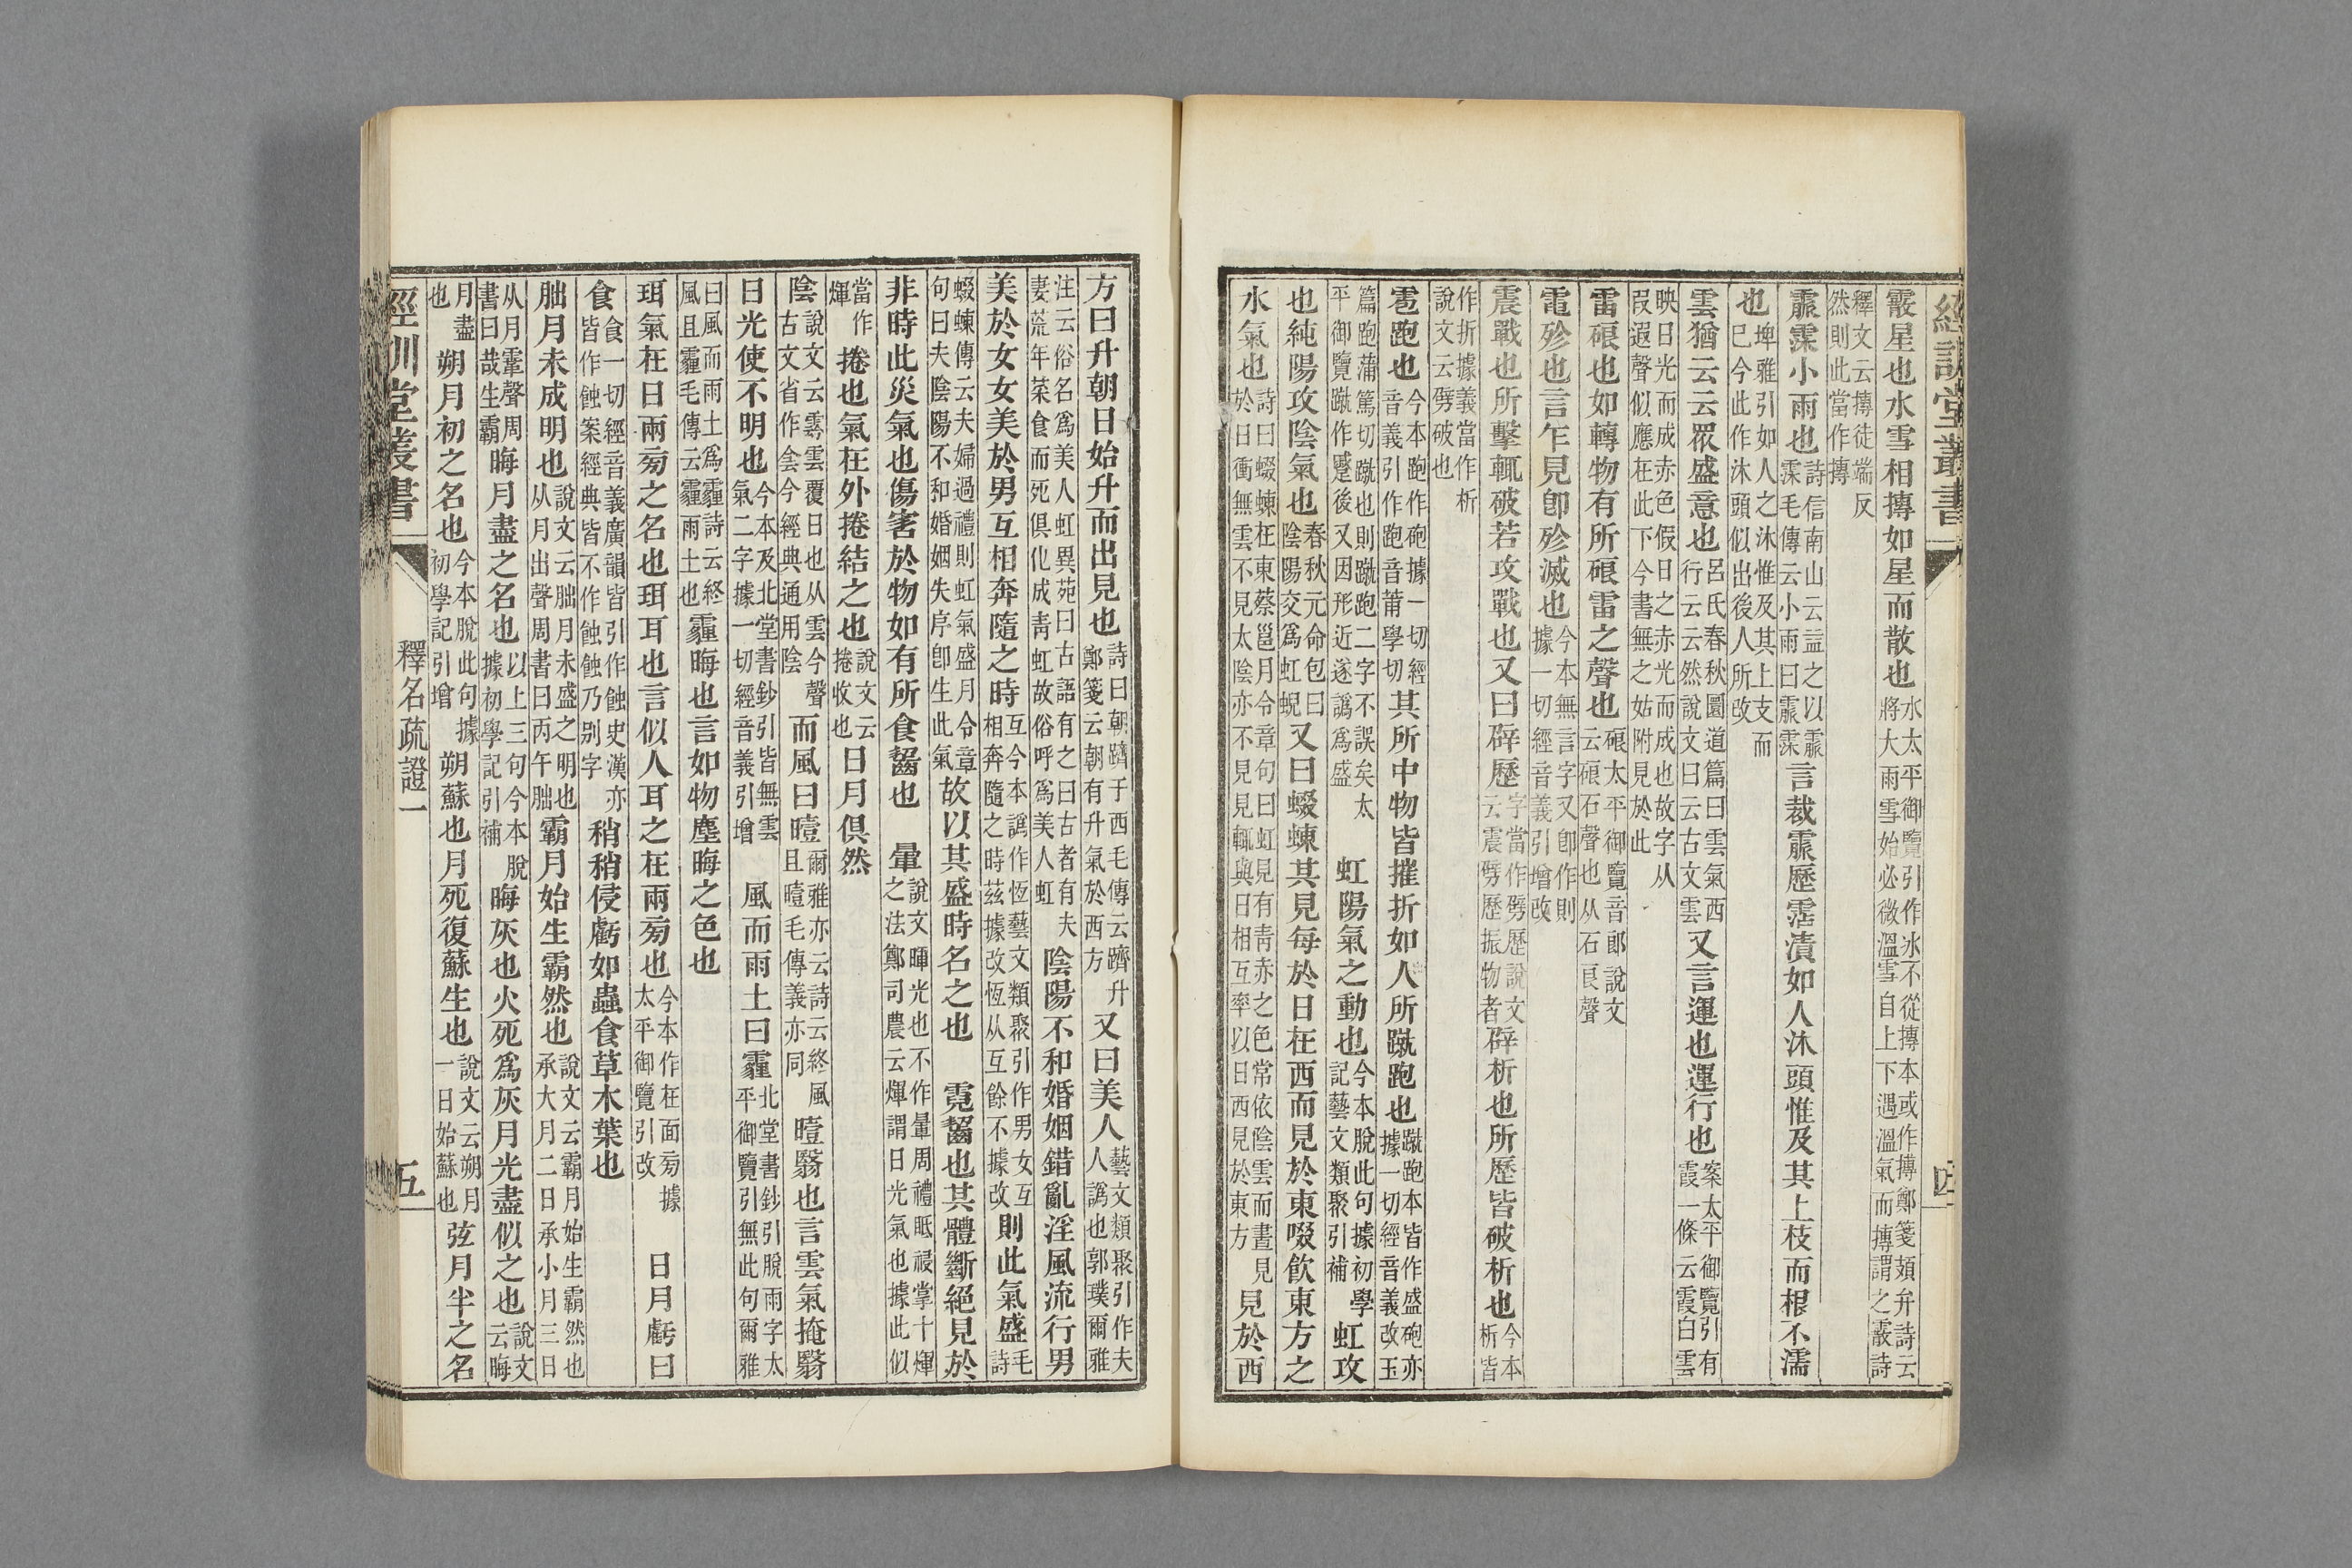 經訓堂叢書
四
霰星也水雪相搏如星而散也水太平御覽引作冰不從搏本或作摶鄭箋頍弁詩云將大雨雪始必微溫雪自上下遇溫氣而摶謂之霰詩
釋文云摶徒端反然則此當作摶
霡霂小雨也詩信南山云益之以霡霂毛傳云小雨曰霡霂言裁霡歷霑漬如人沐頭惟及其上枝而根不濡
也埤雅引如人之沐惟及其上支而已今此作沐頭似出後人所改
雲猶云云眾盛意也呂氏春秋圜道篇曰雲氣西行云云然說文曰云古文雲又言運也運行也案太平御覽引有霞一條云霞白雲
映日光而成赤色假日之赤光而成也故字从叚遐聲似應在此下今書無之姑附見於此
雷硠也如轉物有所硠雷之聲也硠太平御覽音郎說文云硠石聲也从石良聲
電殄也言乍見卽殄滅也今本無言字又卽作則據一切經音義引增改
震戰也所擊輒破若攻戰也又曰辟歷字當作劈歷說文云震劈歷振物者辟析也所歷皆破析也今本析皆
作折據義當作析說文云劈破也
雹跑也今本跑作砲據一切經音義引作跑音莆學切其所中物皆摧折如人所蹴跑也蹴跑本皆作盛砲亦據一切經音義改玉
篇跑蒲篤切蹴也則蹴跑二字不誤矣太平御覽蹴作蹙後又因形近遂譌爲盛　虹陽氣之動也今本脫此句據初學記藝文類聚引補虹攻
也純陽攻陰氣也春秋元命包曰陰陽交爲虹蜺又曰蝃蝀其見每於日在西而見於東啜飲東方之
水氣也詩曰蝃蝀在東蔡邕月令章句曰虹見有青赤之色常依陰雲而晝見於日衝無雲不見太陰亦不見見輒與日相互率以日西見於東方見於西
方曰升朝日始升而出見也詩曰朝隮于西毛傳云隮升鄭箋云朝有升氣於西方又曰美人藝文類聚引作夫人譌也郭璞爾雅
注云俗名爲美人虹異苑曰古語有之曰古者有夫妻荒年菜食而死俱化成青虹故俗呼爲美人虹陰陽不和婚姻錯亂淫風流行男
美於女女美於男互相奔隨之時互今本譌作恆藝文類聚引作男女互相奔隨之時茲據改恆从互餘不據改則此氣盛毛詩
蝃蝀傳云夫婦過禮則虹氣盛月令章句曰夫陰陽不和婚姻失序卽生此氣故以其盛時名之也　霓齧也其體斷絕見於
非時此災氣也傷害於物如有所食齧也　暈說文暉光也不作暈周禮眡祲掌十煇之法鄭司農云煇謂日光氣也據此似
當作煇捲也氣在外捲結之也說文云捲收也日月俱然
陰說文云霒雲覆日也从雲今聲古文省作侌今經典通用陰而風曰曀爾雅亦云詩云終風且曀毛傳義亦同曀翳也言雲氣掩翳
日光使不明也今本及北堂書鈔引皆無雲氣二字據一切經音義引增　風而雨土曰霾北堂書鈔引脫雨字太平御覽引無此句爾雅
曰風而雨土爲霾詩云終風且霾毛傳云霾雨土也霾晦也言如物塵晦之色也
珥氣在日兩㫄之名也珥耳也言似人耳之在兩㫄也今本作在面㫄據太平御覽引改　日月虧曰
食食一切經音義廣韻皆引作蝕史漢亦皆作蝕案經典皆不作蝕蝕乃别字稍稍侵虧如蟲食草木葉也
朏月未成明也說文云朏月未盛之明也从月出聲周書曰丙午朏霸月始生霸然也說文云霸月始生霸然也承大月二日承小月三日
从月䨣聲周書曰哉生霸晦月盡之名也以上三句今本脫據初學記引補晦灰也火死爲灰月光盡似之也說文云晦
月盡也朔月初之名也今本脫此句據初學記引增朔蘇也月死復蘇生也說文云朔月一日始蘇也弦月半之名
經訓堂叢書
釋名疏證一
五